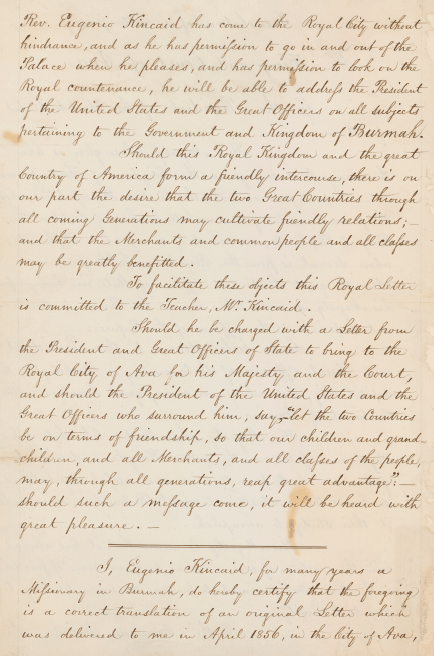 Rev. Eugenio Kincaid has come to the Royal City without
hindrance, and as he has permission to go in and out of the
Palace when he pleases, and has permission to look on the
Royal countenance, he will be able to address the President
of the United States and the Great Officers on all subjects
pertaining to the Government and Kingdom of Burmah.
Should this Royal Kingdom and the great
Country of America form a friendly intercourse, there is on
our part the desire that the two Great Countries through
all coming Generations may cultivate friendly relations; —
and that the Merchants and common people and all classes
may be greatly benefitted.
To facilitate these objects this Royal Letter
is committed to the Teacher, Mr. Kincaid.
Should he be charged with a Letter from
the President and Great Officers of State to bring to the
Royal City of Ava for his Majesty and the Court,
and should the President of the United States and the
Great Officers who surround him, say, "let the two Countries
be on terms of friendship, so that our children and grand-
children, and all Merchants, and all classes of the people,
may, through all generations, reap great advantage": —
should such a message come, it will be heard with
great pleasure. —
I, Eugenio Kincaid, for many years a
Missionary in Burmah, do hereby certify that the foregoing
is a correct translation of an original Letter which
was delivered to me in April 1856, in the City of Ava,